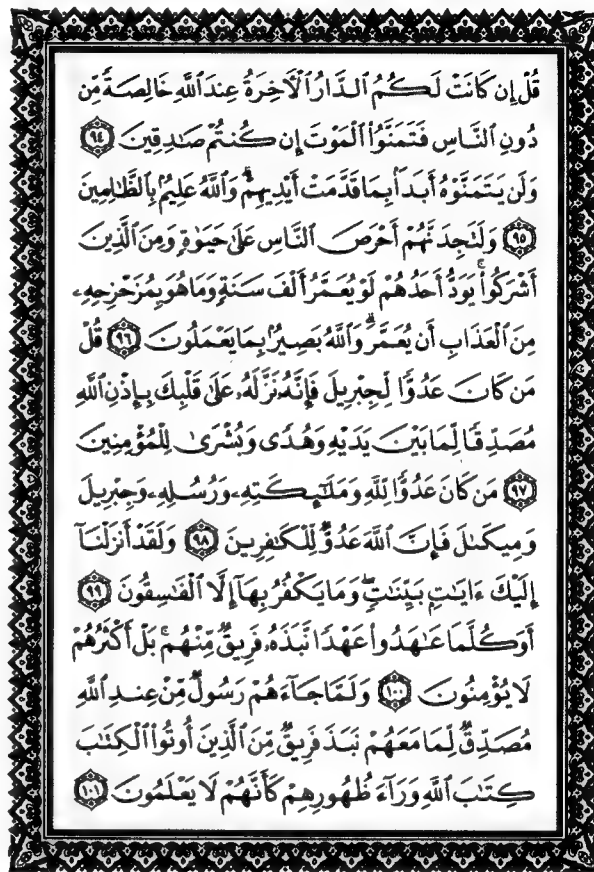 قُلْ إِن كَانَتْ لَكُمُ ٱلدَّارُ ٱلْـَٔاخِرَةُ عِندَ ٱللَّهِ خَالِصَةً مِّن
دُونِ ٱلنَّاسِ فَتَمَنَّوُا۟ ٱلْمَوْتَ إِن كُنتُمْ صَـٰدِقِينَ ٩٤
وَلَن يَتَمَنَّوْهُ أَبَدًۢا بِمَا قَدَّمَتْ أَيْدِيهِمْ ۗ وَٱللَّهُ عَلِيمٌۢ بِٱلظَّـٰلِمِينَ
٩٥ وَلَتَجِدَنَّهُمْ أَحْرَصَ ٱلنَّاسِ عَلَىٰ حَيَوٰةٍ وَمِنَ ٱلَّذِينَ
أَشْرَكُوا۟ ۚ يَوَدُّ أَحَدُهُمْ لَوْ يُعَمَّرُ أَلْفَ سَنَةٍ وَمَا هُوَ بِمُزَحْزِحِهِۦ
مِنَ ٱلْعَذَابِ أَن يُعَمَّرَ ۗ وَٱللَّهُ بَصِيرٌۢ بِمَا يَعْمَلُونَ ٩٦ قُلْ
مَن كَانَ عَدُوًّا لِّجِبْرِيلَ فَإِنَّهُۥ نَزَّلَهُۥ عَلَىٰ قَلْبِكَ بِإِذْنِ ٱللَّهِ
مُصَدِّقًا لِّمَا بَيْنَ يَدَيْهِ وَهُدًى وَبُشْرَىٰ لِلْمُؤْمِنِينَ
٩٧ مَن كَانَ عَدُوًّا لِّلَّهِ وَمَلَـٰٓئِكَتِهِۦ وَرُسُلِهِۦ وَجِبْرِيلَ
وَمِيكَىٰلَ فَإِنَّ ٱللَّهَ عَدُوٌّ لِّلْكَـٰفِرِينَ ٩٨ وَلَقَدْ أَنزَلْنَآ
إِلَيْكَ ءَايَـٰتٍۭ بَيِّنَـٰتٍ ۖ وَمَا يَكْفُرُ بِهَآ إِلَّا ٱلْفَـٰسِقُونَ ٩٩
أَوَكُلَّمَا عَـٰهَدُوا۟ عَهْدًا نَّبَذَهُۥ فَرِيقٌ مِّنْهُم ۚ بَلْ أَكْثَرُهُمْ
لَا يُؤْمِنُونَ ١٠٠ وَلَمَّا جَآءَهُمْ رَسُولٌ مِّنْ عِندِ ٱللَّهِ
مُصَدِّقٌ لِّمَا مَعَهُمْ نَبَذَ فَرِيقٌ مِّنَ ٱلَّذِينَ أُوتُوا۟ ٱلْكِتَـٰبَ
كِتَـٰبَ ٱللَّهِ وَرَآءَ ظُهُورِهِمْ كَأَنَّهُمْ لَا يَعْلَمُونَ ١٠١